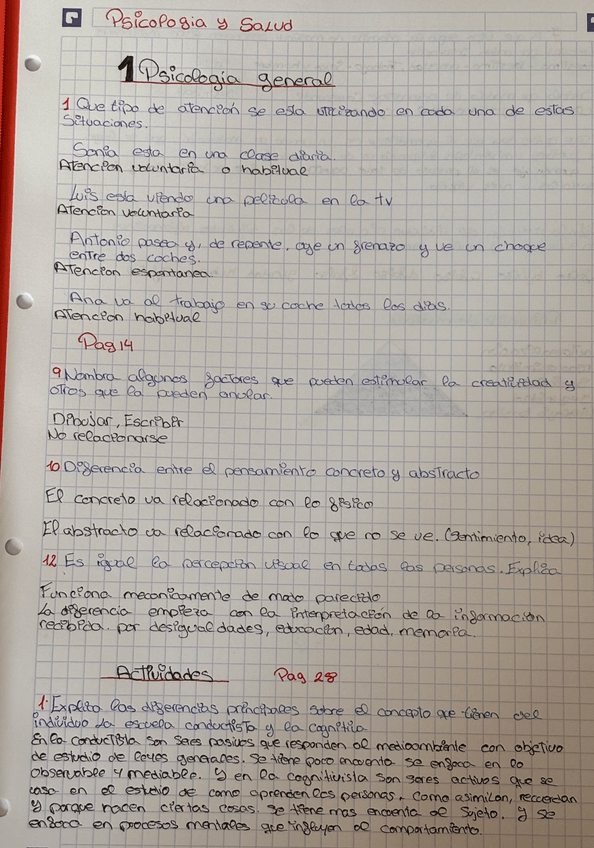 Psicologia y Salud
1 Psicologia general
1 Que tipo de atención se esta utilizando en cada una de estas
Situaciones.
Sonia esta en una clase diaria.
Atencion voluntaria o habitual
Luis esta viendo una pelicula en la tv
Atencion voluntaria
Antonio pasea y, de repente, oye un frenazo y ve un choque
entre dos coches.
Atencion espontanea
Ana va al trabajo en su coche todos los dias.
Atencion habitual
Pag 14
9 Nombra algunos factores que pueden estimular la creatividad y
otros que la pueden anular.
Dibujar, Escribir
No relacionarse
10 Diferencia entre el pensamiento concreto y abstracto
El concreto va relacionado con lo fisico
El abstracto va relacionado con lo que no se ve. (sentimiento, idea)
12 Es igual la percepción visual en todas las personas. Explica
Funciona mecanicamente de modo parecido
La diferencia empieza con la interpretación de la información
recibida. por desigualdades, educación, edad, memoria.
Actividades Pag 28
1. Explica las diferencias principales sobre el concepto que tienen del
individuo la escuela conductista y la cognitiva
En la conductista son seres pasivos que responden al medioambiente con objetivo
de estudio de leyes generales. Se tiene poco encuenta se enfoca en lo
observable y mediable. Y en la cognitivista son seres activos que se
basa en el estudio de como aprenden las personas, como asimilan, recuerdan
y porque hacen ciertas cosas. se tiene mas encuenta al sujeto. y se
enfoca en procesos mentales que influyen al comportamiento.